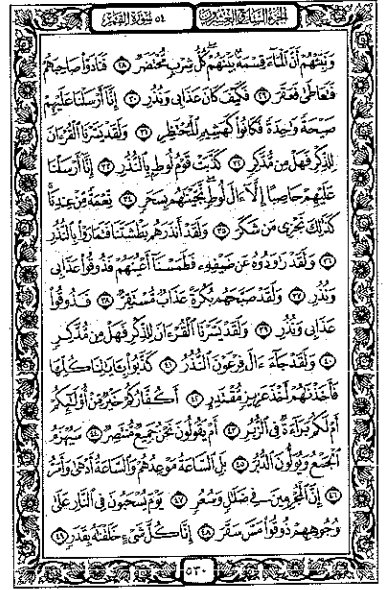 الجزء السابع والعشرون ٥٤ سورة القمر
وَنَبِّئْهُمْ أَنَّ الْمَاءَ قِسْمَةٌ بَيْنَهُمْ كُلُّ شِرْبٍ مُحْتَضَرٌ ٢٨ فَنَادَوْا صَاحِبَهُمْ
فَتَعَاطَى فَعَقَرَ ٢٩ فَكَيْفَ كَانَ عَذَابِي وَنُذُرِ ٣٠ إِنَّا أَرْسَلْنَا عَلَيْهِمْ
صَيْحَةً وَاحِدَةً فَكَانُوا كَهَشِيمِ الْمُحْتَظِرِ ٣١ وَلَقَدْ يَسَّرْنَا الْقُرْءَانَ
لِلذِّكْرِ فَهَلْ مِنْ مُدَّكِرٍ ٣٢ كَذَّبَتْ قَوْمُ لُوطٍ بِالنُّذُرِ ٣٣ إِنَّا أَرْسَلْنَا
عَلَيْهِمْ حَاصِبًا إِلَّا ءَالَ لُوطٍ نَجَّيْنَاهُمْ بِسَحَرٍ ٣٤ نِعْمَةً مِنْ عِنْدِنَا
كَذَلِكَ نَجْزِي مَنْ شَكَرَ ٣٥ وَلَقَدْ أَنْذَرَهُمْ بَطْشَتَنَا فَتَمَارَوْا بِالنُّذُرِ
٣٦ وَلَقَدْ رَاوَدُوهُ عَنْ ضَيْفِهِ فَطَمَسْنَا أَعْيُنَهُمْ فَذُوقُوا عَذَابِي
وَنُذُرِ ٣٧ وَلَقَدْ صَبَّحَهُمْ بُكْرَةً عَذَابٌ مُسْتَقِرٌّ ٣٨ فَذُوقُوا
عَذَابِي وَنُذُرِ ٣٩ وَلَقَدْ يَسَّرْنَا الْقُرْءَانَ لِلذِّكْرِ فَهَلْ مِنْ مُدَّكِرٍ
٤٠ وَلَقَدْ جَاءَ ءَالَ فِرْعَوْنَ النُّذُرُ ٤١ كَذَّبُوا بِآيَاتِنَا كُلِّهَا
فَأَخَذْنَاهُمْ أَخْذَ عَزِيزٍ مُقْتَدِرٍ ٤٢ أَكُفَّارُكُمْ خَيْرٌ مِنْ أُولَئِكُمْ
أَمْ لَكُمْ بَرَاءَةٌ فِي الزُّبُرِ ٤٣ أَمْ يَقُولُونَ نَحْنُ جَمِيعٌ مُنْتَصِرٌ ٤٤ سَيُهْزَمُ
الْجَمْعُ وَيُوَلُّونَ الدُّبُرَ ٤٥ بَلِ السَّاعَةُ مَوْعِدُهُمْ وَالسَّاعَةُ أَدْهَى وَأَمَرُّ
٤٦ إِنَّ الْمُجْرِمِينَ فِي ضَلَالٍ وَسُعُرٍ ٤٧ يَوْمَ يُسْحَبُونَ فِي النَّارِ عَلَى
وُجُوهِهِمْ ذُوقُوا مَسَّ سَقَرَ ٤٨ إِنَّا كُلَّ شَيْءٍ خَلَقْنَاهُ بِقَدَرٍ ٤٩
٥٣٠